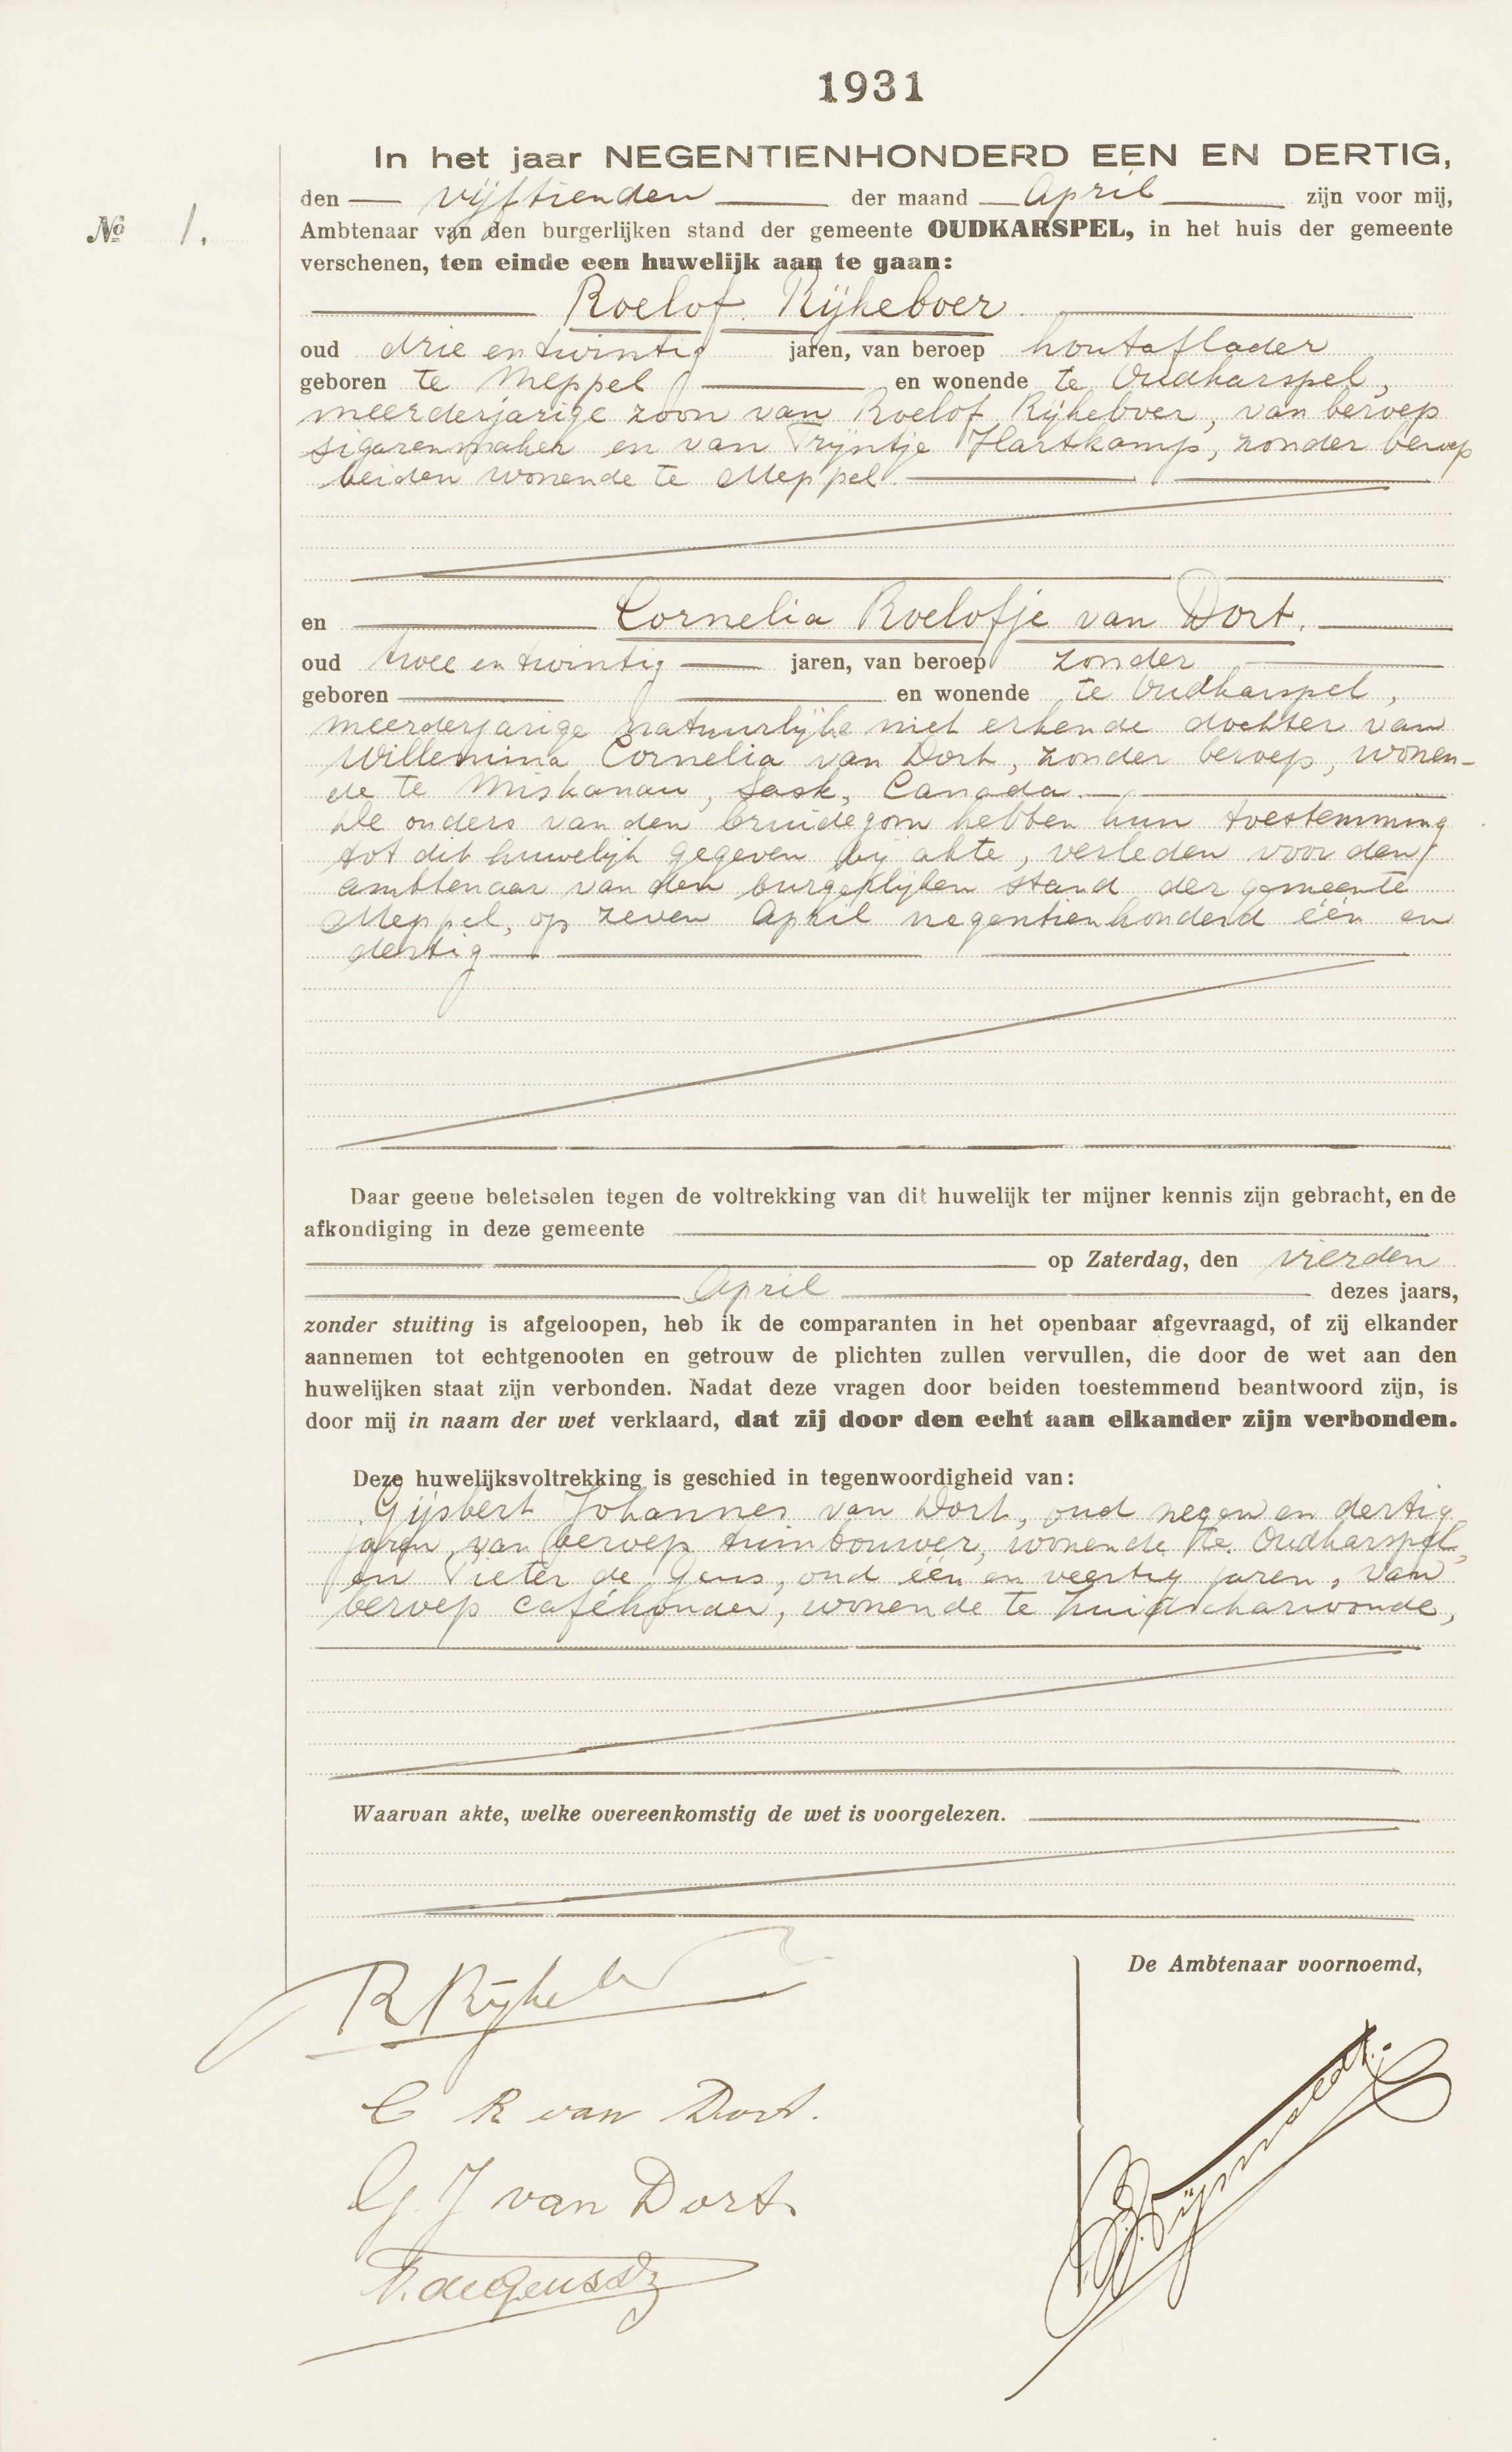 1931
In het jaar NEGENTIENHONDERD EEN EN DERTIG,
den vijftienden der maand April zijn voor mij,
No 1.
Ambtenaar van den burgerlijken stand der gemeente OUDKARSPEL, in het huis der gemeente
verschenen, ten einde een huwelijk aan te gaan:
Roelof Rijkeboer
oud drie en twintig jaren, van beroep houtaflader
geboren te Meppel en wonende te Oudkarspel,
meerderjarige zoon van Roelof Rijkeboer, van beroep
sigarenmaker en van Trijntje Hartkamp, zonder beroep
beiden wonende te Meppel.
en Cornelia Roelofje van Dort.
oud twee en twintig jaren, van beroep zonder
geboren en wonende te Oudkarspel,
meerderjarige natuurlijke niet erkende dochter van
Willemina Cornelia van Dort, zonder beroep, wonen-
de te Miskanau, Sask, Canada.
De ouders van den bruidegom hebben hun toestemming
tot dit huwelijk gegeven bij akte, verleden voor den
ambtenaar van den burgerlijken stand der gemeente
Meppel, op zeven April negentienhonderd één en
dertig
Daar geene beletselen tegen de voltrekking van dit huwelijk ter mijner kennis zijn gebracht, en de
afkondiging in deze gemeente
op Zaterdag, den vierden
April dezes jaars,
zonder stuiting is afgeloopen, heb ik de comparanten in het openbaar afgevraagd, of zij elkander
aannemen tot echtgenooten en getrouw de plichten zullen vervullen, die door de wet aan den
huwelijken staat zijn verbonden. Nadat deze vragen door beiden toestemmend beantwoord zijn, is
door mij in naam der wet verklaard, dat zij door den echt aan elkander zijn verbonden.
Deze huwelijksvoltrekking is geschied in tegenwoordigheid van:
Gijsbert Johannes van Dort, oud negen en dertig
jaren, van beroep tuinbouwer, wonende te Oudkarspel,
en Pieter de Geus, oud één en veertig jaren, van
beroep caféhouder, wonende te Zuidscharwoude,
Waarvan akte, welke overeenkomstig de wet is voorgelezen.
De Ambtenaar voornoemd,
R Rijkeboer
C R van Dort.
G J van Dort.
P. de Geus Dz